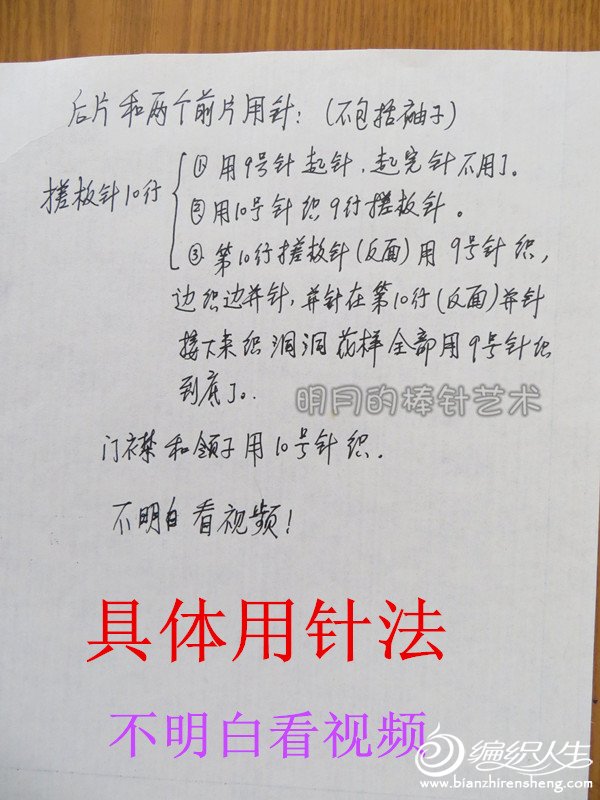 后片和两个前片用针：(不包括袖子)
搓板针10行
① 用9号针起针，起完针不用了。
② 用10号针织9行搓板针。
③ 第10行搓板针(反面)用9号针织，
边织边并针，并针在第10行(反面)并针
接下来织洞洞花样全部用9号针织
到底了。
明月的棒针艺术
门衣襟和领子用10号针织.
不明白看视频！
具体用针法
不明白看视频
编织人生
www.bianzhirensheng.com